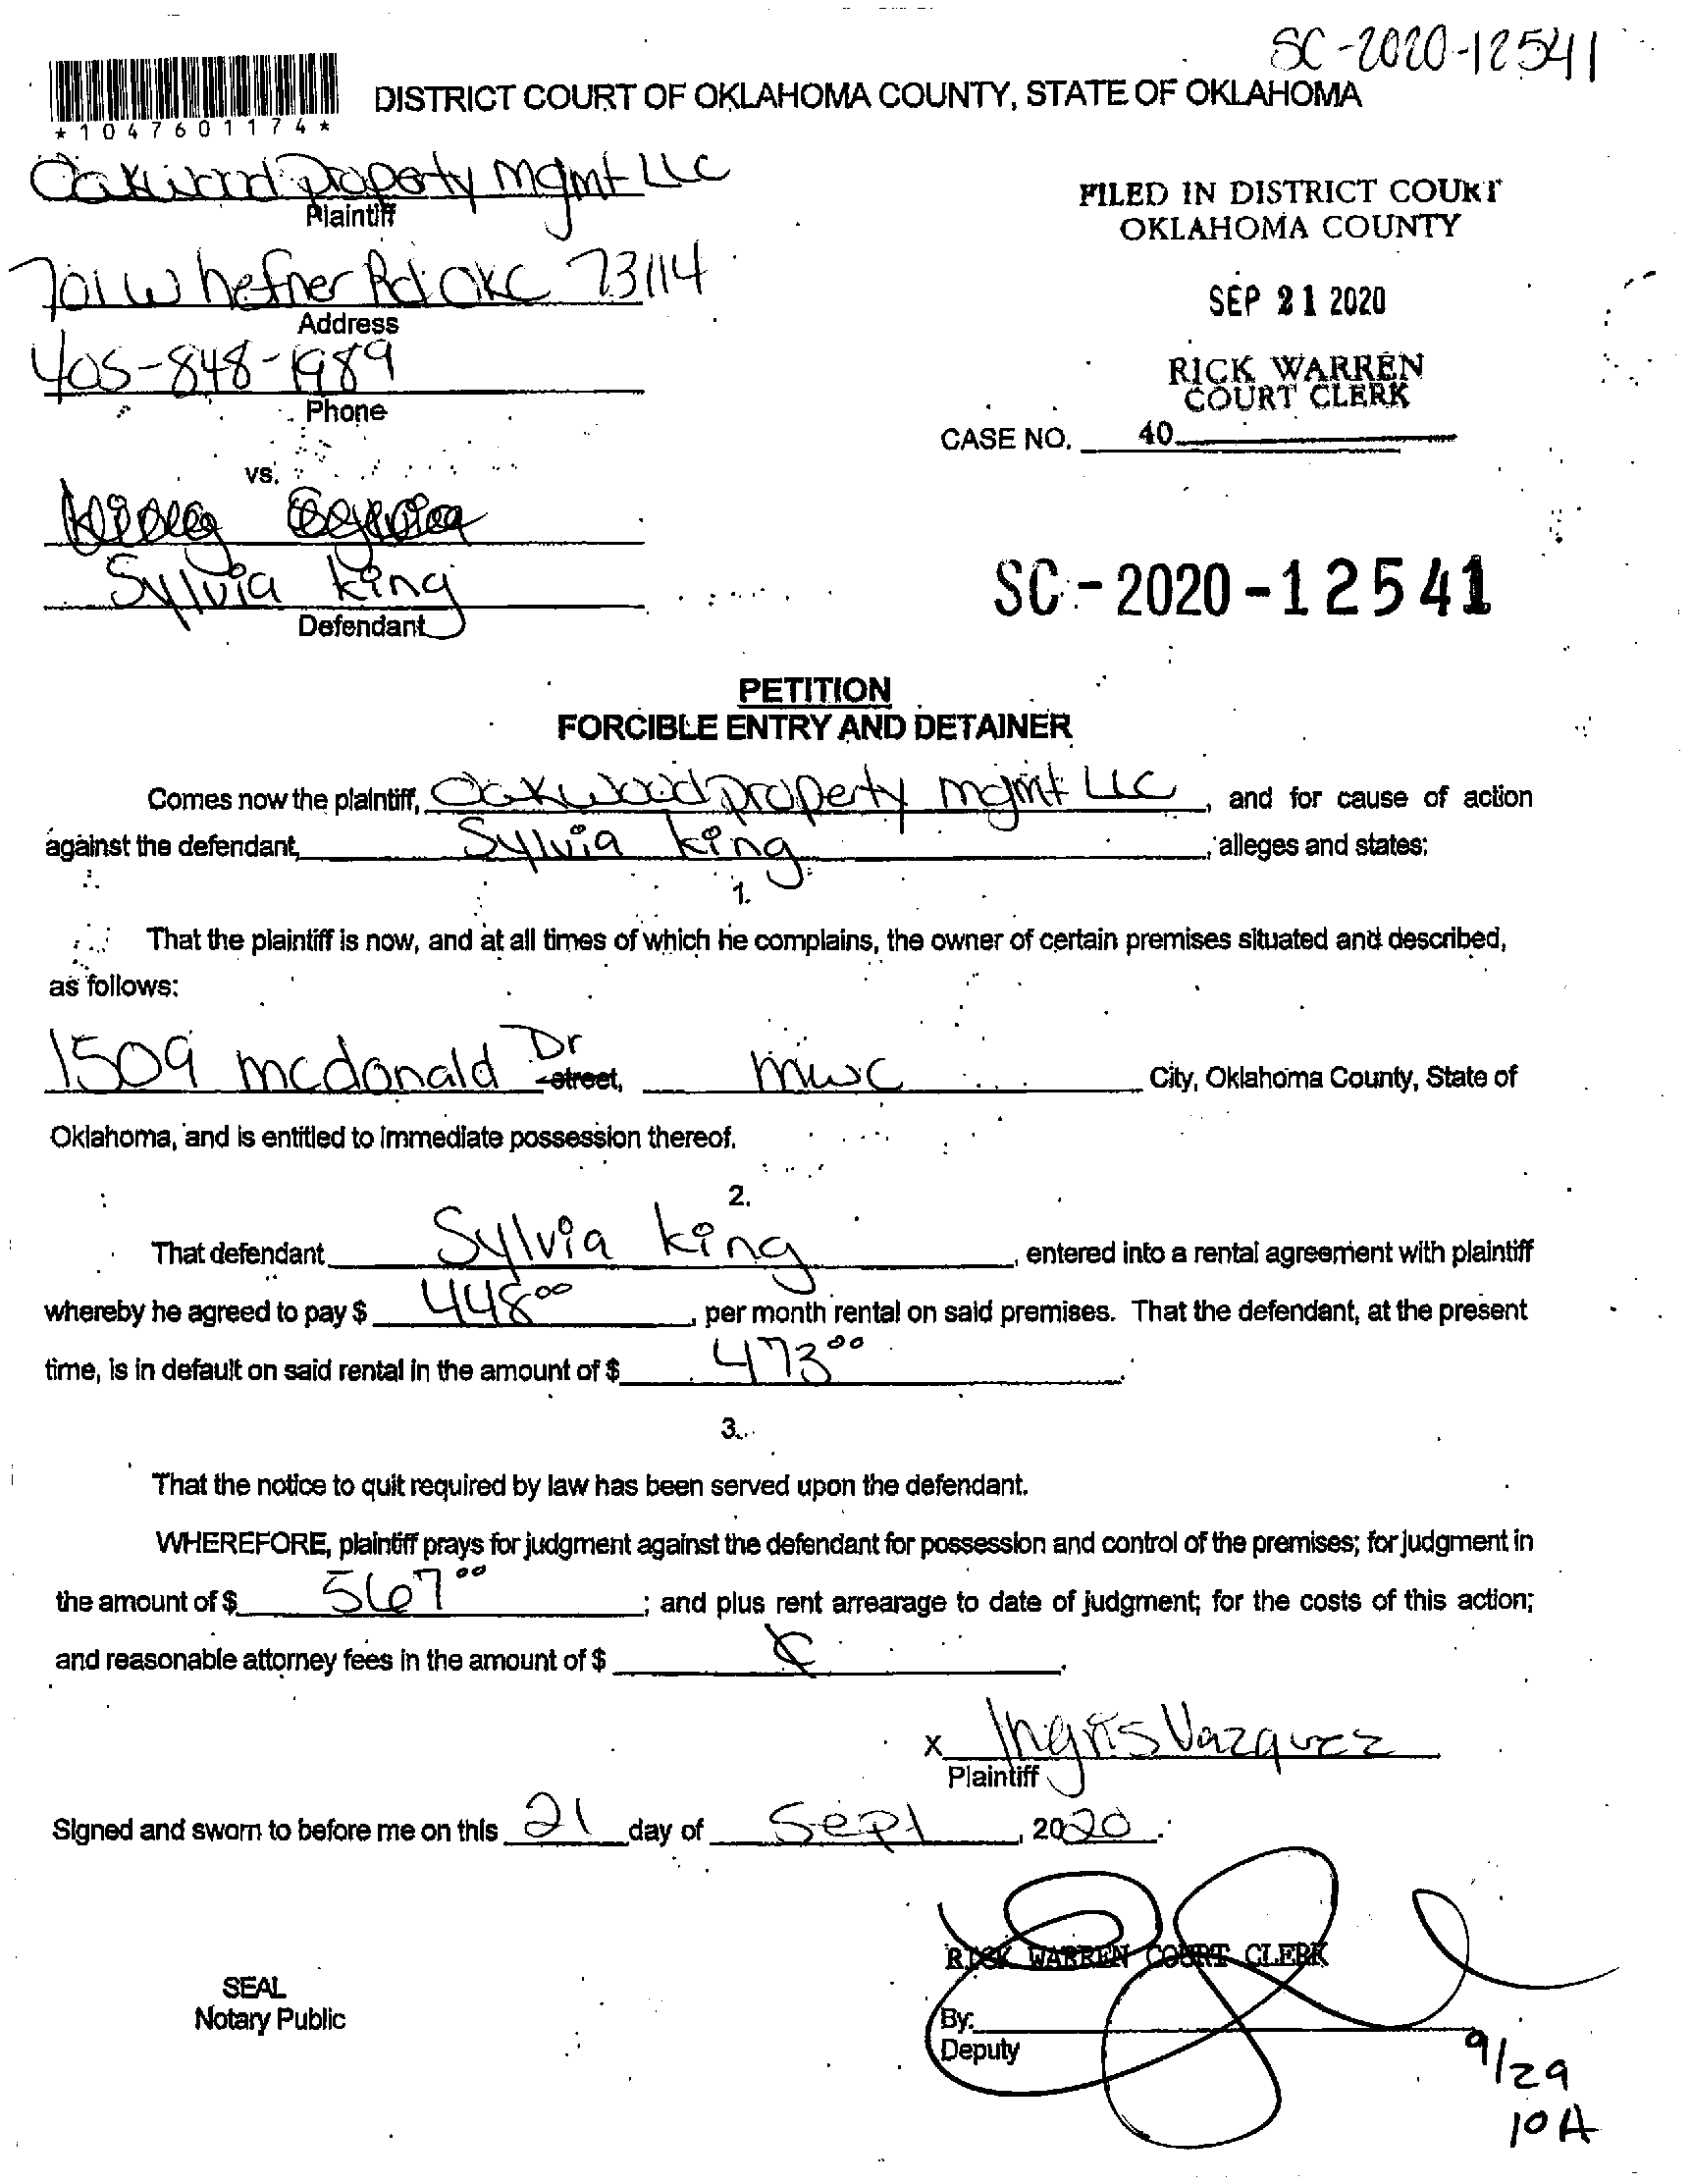 SC-2020-12541
*1047601174*
DISTRICT COURT OF OKLAHOMA COUNTY, STATE OF OKLAHOMA
Oakwood Property Mgmt LLC
Plaintiff
FILED IN DISTRICT COURT
OKLAHOMA COUNTY
701 W hefner Rd OKC 73114
Address
SEP 21 2020
405-848-1989
Phone
RICK WARREN
COURT CLERK
CASE NO. 40
vs.
Sylvia King
Defendant
SC-2020-12541
PETITION
FORCIBLE ENTRY AND DETAINER
Comes now the plaintiff, Oakwood property mgmt LLC, and for cause of action
against the defendant, Sylvia King, alleges and states:
1.
That the plaintiff is now, and at all times of which he complains, the owner of certain premises situated and described,
as follows:
1509 mcdonald Dr street, mwc City, Oklahoma County, State of
Oklahoma, and is entitled to immediate possession thereof.
2.
That defendant Sylvia King, entered into a rental agreement with plaintiff
whereby he agreed to pay $ 448.00, per month rental on said premises. That the defendant, at the present
time, is in default on said rental in the amount of $ 473.00.
3.
That the notice to quit required by law has been served upon the defendant.
WHEREFORE, plaintiff prays for judgment against the defendant for possession and control of the premises; for judgment in
the amount of $ 567.00; and plus rent arrearage to date of judgment; for the costs of this action;
and reasonable attorney fees in the amount of $
x Ingris Vazquez
Plaintiff
Signed and sworn to before me on this 21 day of Sept, 2020.
RICK WARREN COURT CLERK
SEAL
Notary Public
By:
Deputy
9/29
10 A